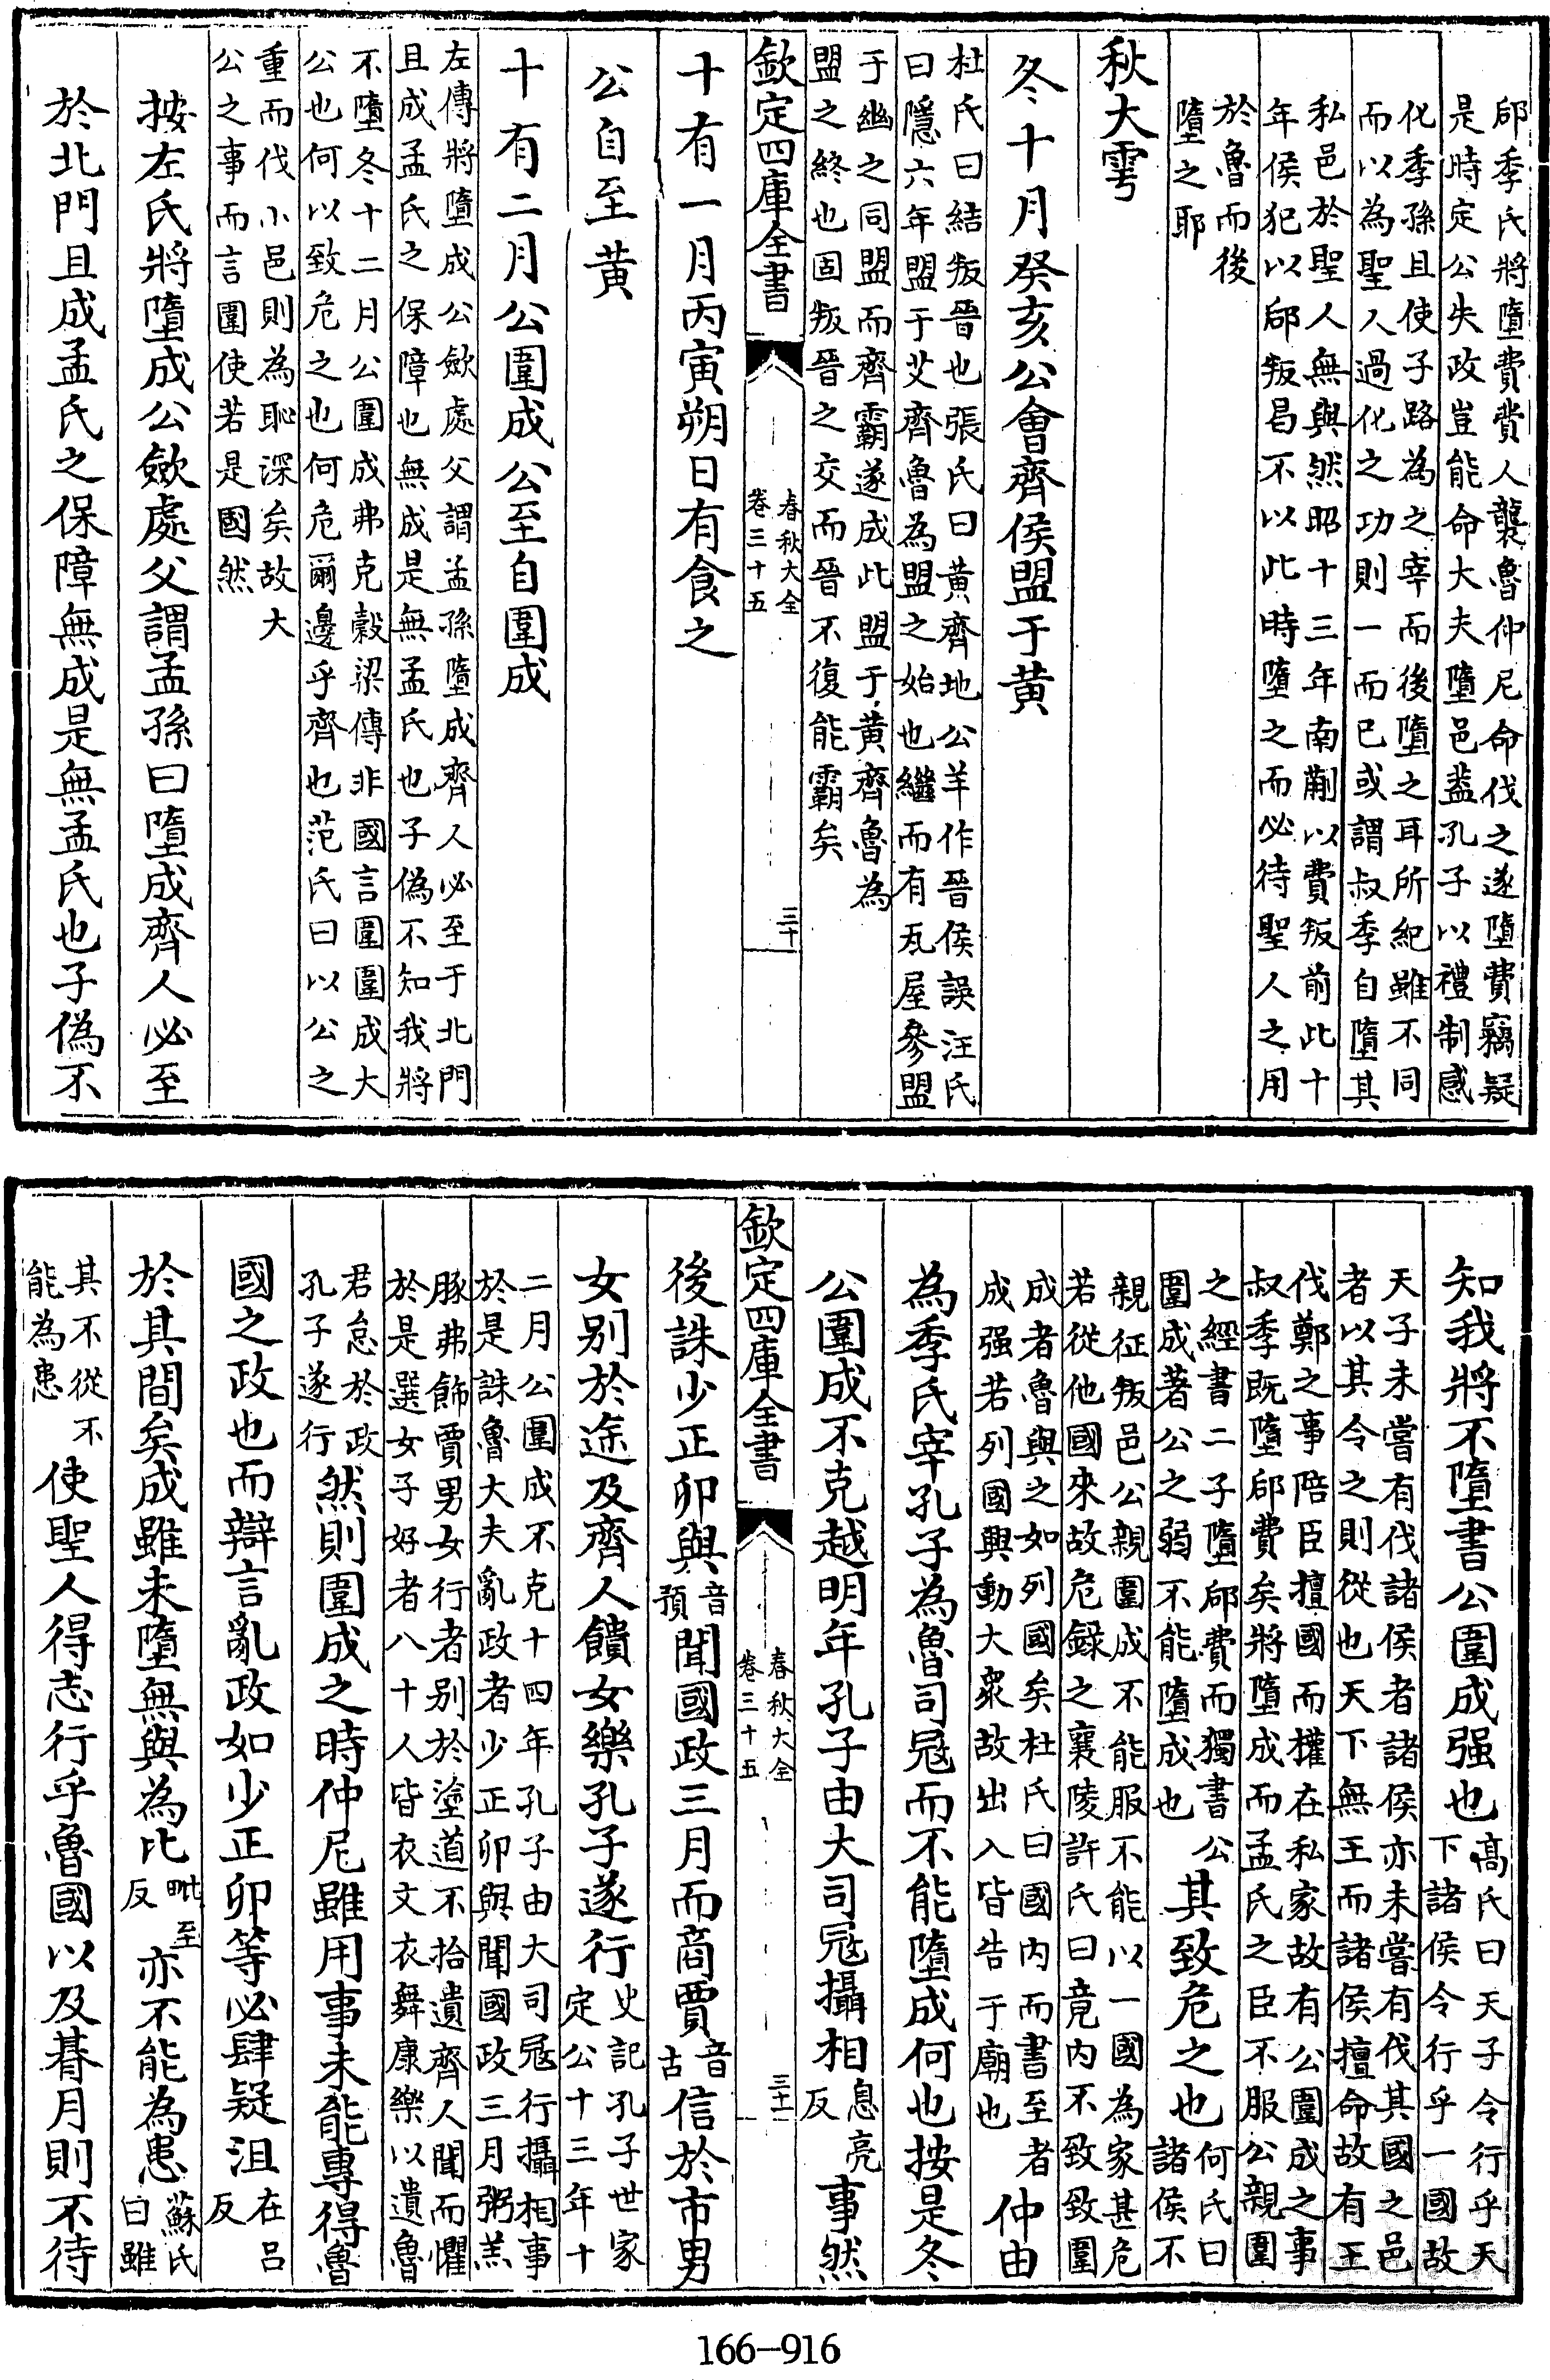 郈季氏將墮費費人襲魯仲尼命伐之遂墮費竊疑
是時定公失政豈能命大夫墮邑葢孔子以禮制感
化季孫且使子路為之宰而後墮之耳所紀雖不同
而以為聖人過化之功則一而已或謂叔季自墮其
私邑於聖人無與然昭十三年南蒯以費叛前此十
年侯犯以郈叛曷不以此時墮之而必待聖人之用
於魯而後
墮之耶
秋大雩
冬十月癸亥公會齊侯盟于黄
杜氏曰結叛晉也張氏曰黄齊地公羊作晉侯誤汪氏
曰隱六年盟于艾齊魯為盟之始也繼而有瓦屋參盟
于幽之同盟而齊霸遂成此盟于黄齊魯為
盟之終也固叛晉之交而晉不復能霸矣
欽定四庫全書
春秋大全
卷三十五
三十
十有一月丙寅朔日有食之
公自至黄
十有二月公圍成公至自圍成
左傳將墮成公歛處父謂孟孫墮成齊人必至于北門
且成孟氏之保障也無成是無孟氏也子偽不知我將
不墮冬十二月公圍成弗克穀梁傳非國言圍圍成大
公也何以致危之也何危爾邊乎齊也范氏曰以公之
重而伐小邑則為恥深矣故大
公之事而言圍使若是國然
按左氏將墮成公歛處父謂孟孫曰墮成齊人必至
於北門且成孟氏之保障無成是無孟氏也子偽不
知我將不墮書公圍成强也
高氏曰天子令行乎天
下諸侯令行乎一國故
天子未嘗有伐諸侯者諸侯亦未嘗有伐其國之邑
者以其令之則從也天下無王而諸侯擅命故有王
伐鄭之事陪臣擅國而權在私家故有公圍成之事
叔季既墮郈費矣將墮成而孟氏之臣不服公親圍
之經書二子墮郈費而獨書公
圍成著公之弱不能墮成也
其致危之也
何氏曰
諸侯不
親征叛邑公親圍成不能服不能以一國為家甚危
若從他國來故危錄之襄陵許氏曰竟内不致致圍
成者魯與之如列國矣杜氏曰國内而書至者
成强若列國興動大衆故出入皆告于廟也
仲由
為季氏宰孔子為魯司冦而不能墮成何也按是冬
公圍成不克越明年孔子由大司冦攝相
息亮
反
事然
欽定四庫全書
春秋大全
卷三十五
三十一
後誅少正卯與
音
預
聞國政三月而商賈
音
古
信於市男
女别於途及齊人饋女樂孔子遂行
史記孔子世家
定公十三年十
二月公圍成不克十四年孔子由大司冦行攝相事
於是誅魯大夫亂政者少正卯與聞國政三月粥羔
豚弗飾賈男女行者别於塗道不拾遺齊人聞而懼
於是選女子好者八十人皆衣文衣舞康樂以遺魯
君怠於政
孔子遂行
然則圍成之時仲尼雖用事未能專得魯
國之政也而辯言亂政如少正卯等必肆疑沮
在吕
反
於其間矣成雖未墮無與為比
毗至
反
亦不能為患
蘇氏
曰雖
其不從不
能為患
使聖人得志行乎魯國以及朞月則不待
166-916